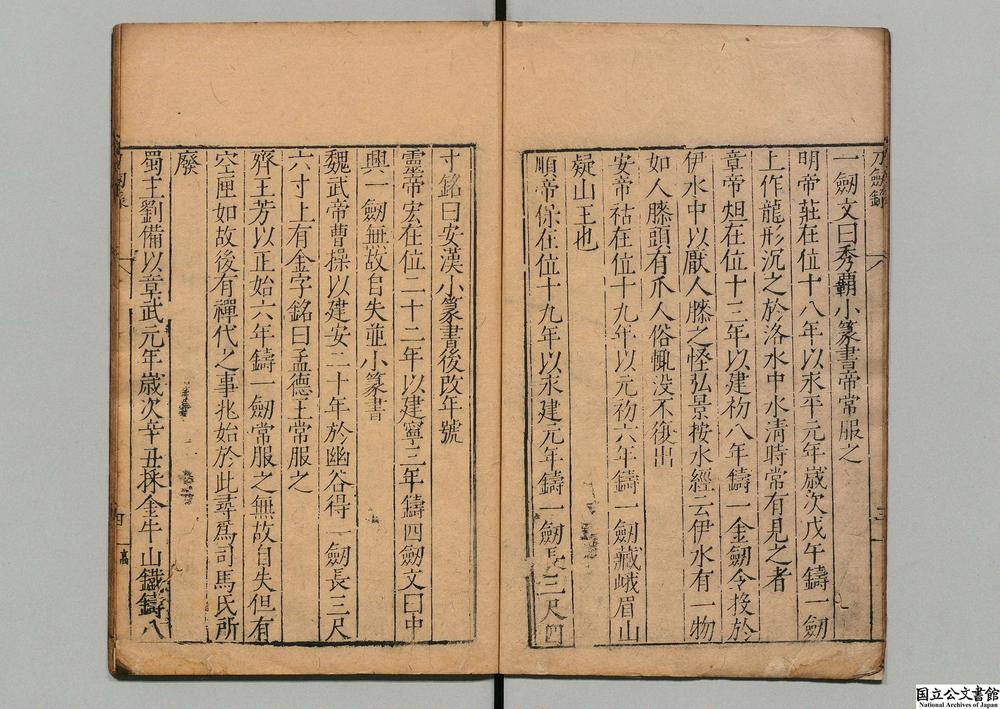 刀劍錄
一劍文曰秀霸小篆書帝常服之
明帝莊在位十八年以永平元年歲次戊午鑄一劍
上作龍形沉之於洛水中水清時常有見之者
章帝炟在位十三年以建初八年鑄一金劍令投於
伊水中以厭人膝之怪弘景按水經云伊水有一物
如人膝頭有爪人俗輒没不復出
安帝祜在位十九年以元初六年鑄一劍藏峨眉山
疑山王也
順帝保在位十九年以永建元年鑄一劍長三尺四
寸銘曰安漢小篆書後改年號
靈帝宏在位二十二年以建寧三年鑄四劍文曰中
興一劍無故自失並小篆書
魏武帝曹操以建安二十年於幽谷得一劍長三尺
六寸上有金字銘曰孟德王常服之
齊王芳以正始六年鑄一劍常服之無故自失但有
空匣如故後有禪代之事兆始於此尋爲司馬氏所
廢
蜀主劉備以章武元年歲次辛丑採金牛山鐵鑄八
四
国立公文書館
National Archives of Japan